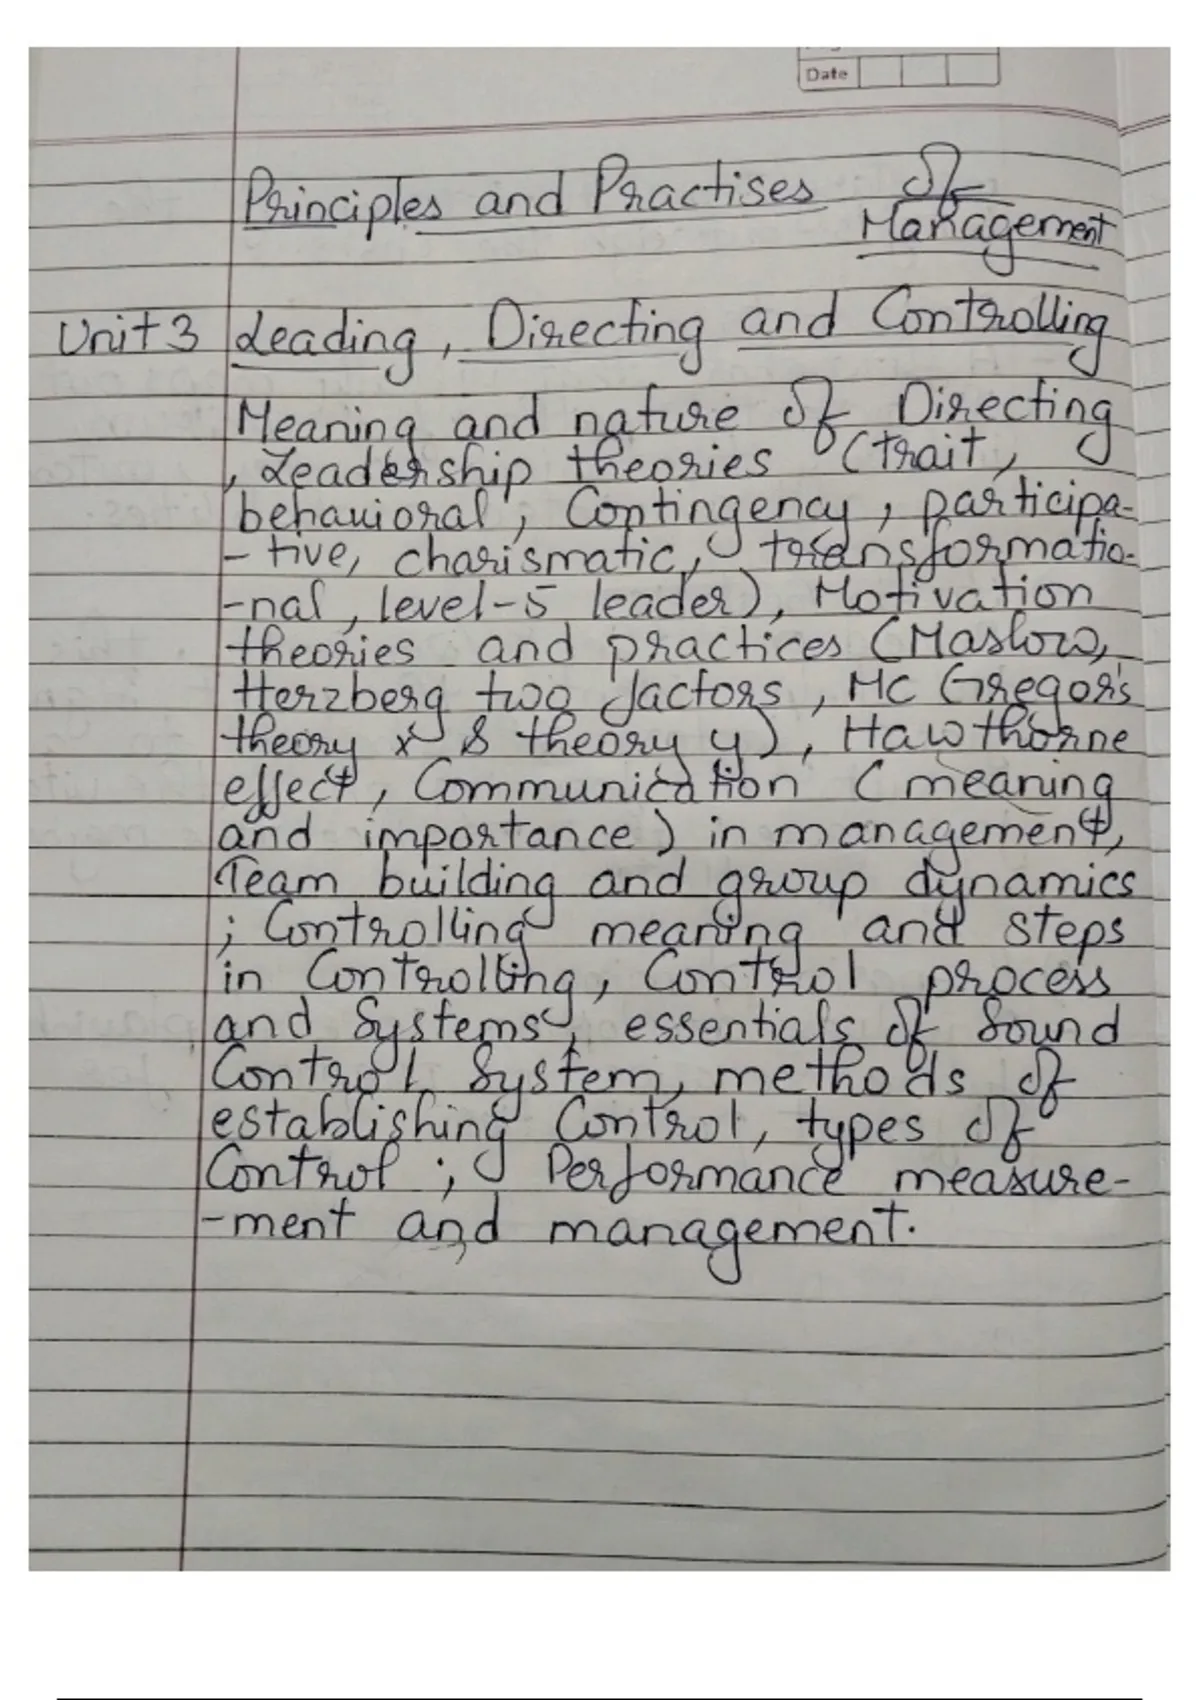 Date
Principles and Practises of
Management
Unit 3 Leading, Directing and Controlling
Meaning and nature of Directing
, Leadership theories (trait,
behavioral, Contingency, participa-
-tive, charismatic, transformatio-
-nal, level-5 leader), Motivation
theories and practices (Maslow,
Herzberg two factors, Mc Gregor's
theory x & theory y), Hawthorne
effect, Communication (meaning
and importance) in management,
Team building and group dynamics
; Controlling meaning and steps
in Controlling, Control process
and Systems, essentials of Sound
Control System, methods of
establishing Control, types of
Control ; Performance measure-
-ment and management.